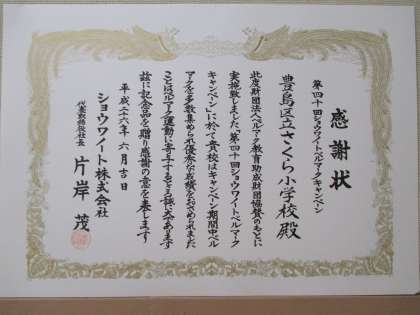 感謝状
第四十回ショウワノートベルマークキャンペーン
豊島区立さくら小学校殿
此度財団法人ベルマーク教育助成財団協賛のもとに
実施致しました「第四十回ショウワノートベルマーク
キャンペーン」に於て貴校はキャンペーン期間中ベル
マークを多数集められ優秀な成績をおさめられました
ことはベルマーク運動に寄与するところ誠に大であります
茲に記念品を贈り感謝の意を表します
平成二十六年六月吉日
ショウワノート株式会社
代表取締役社長
片岸茂